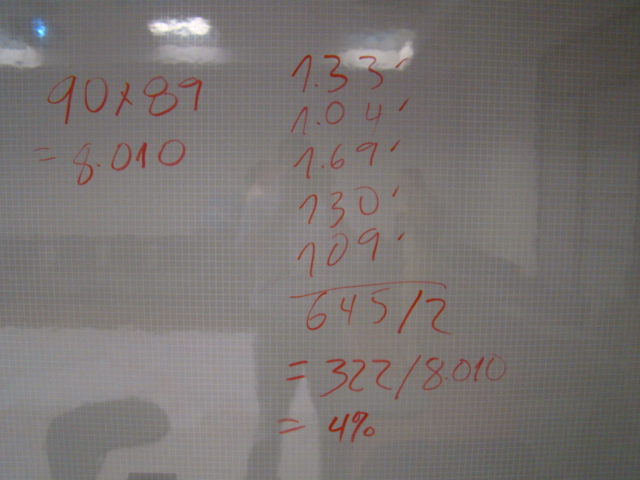 90x89
= 8.010
1.33'
1.04'
1.69'
130'
109'
645/2
= 322/8.010
= 4%